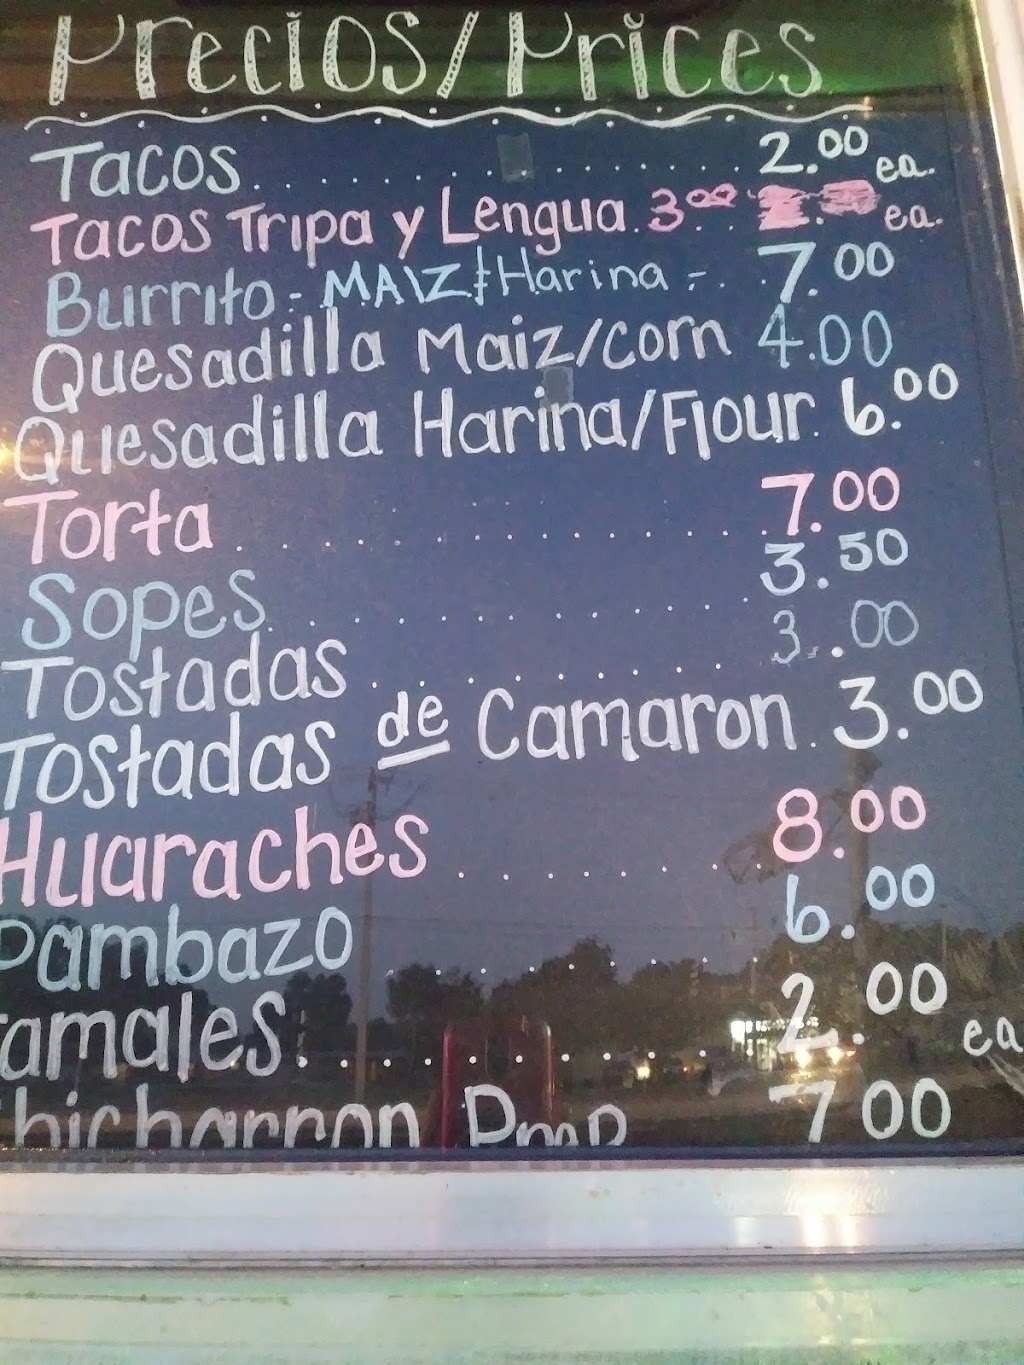 Precios/Prices
Tacos 2.00 ea.
Tacos Tripa y Lengua 3.00 ea.
Burrito - MAIZ Harina - 7.00
Quesadilla Maiz/corn 4.00
Quesadilla Harina/Flour 6.00
Torta 7.00
Sopes 3.50
Tostadas 3.00
Tostadas de Camaron 3.00
Huaraches 8.00
Pambazo 6.00
Tamales 2.00 ea
7.00